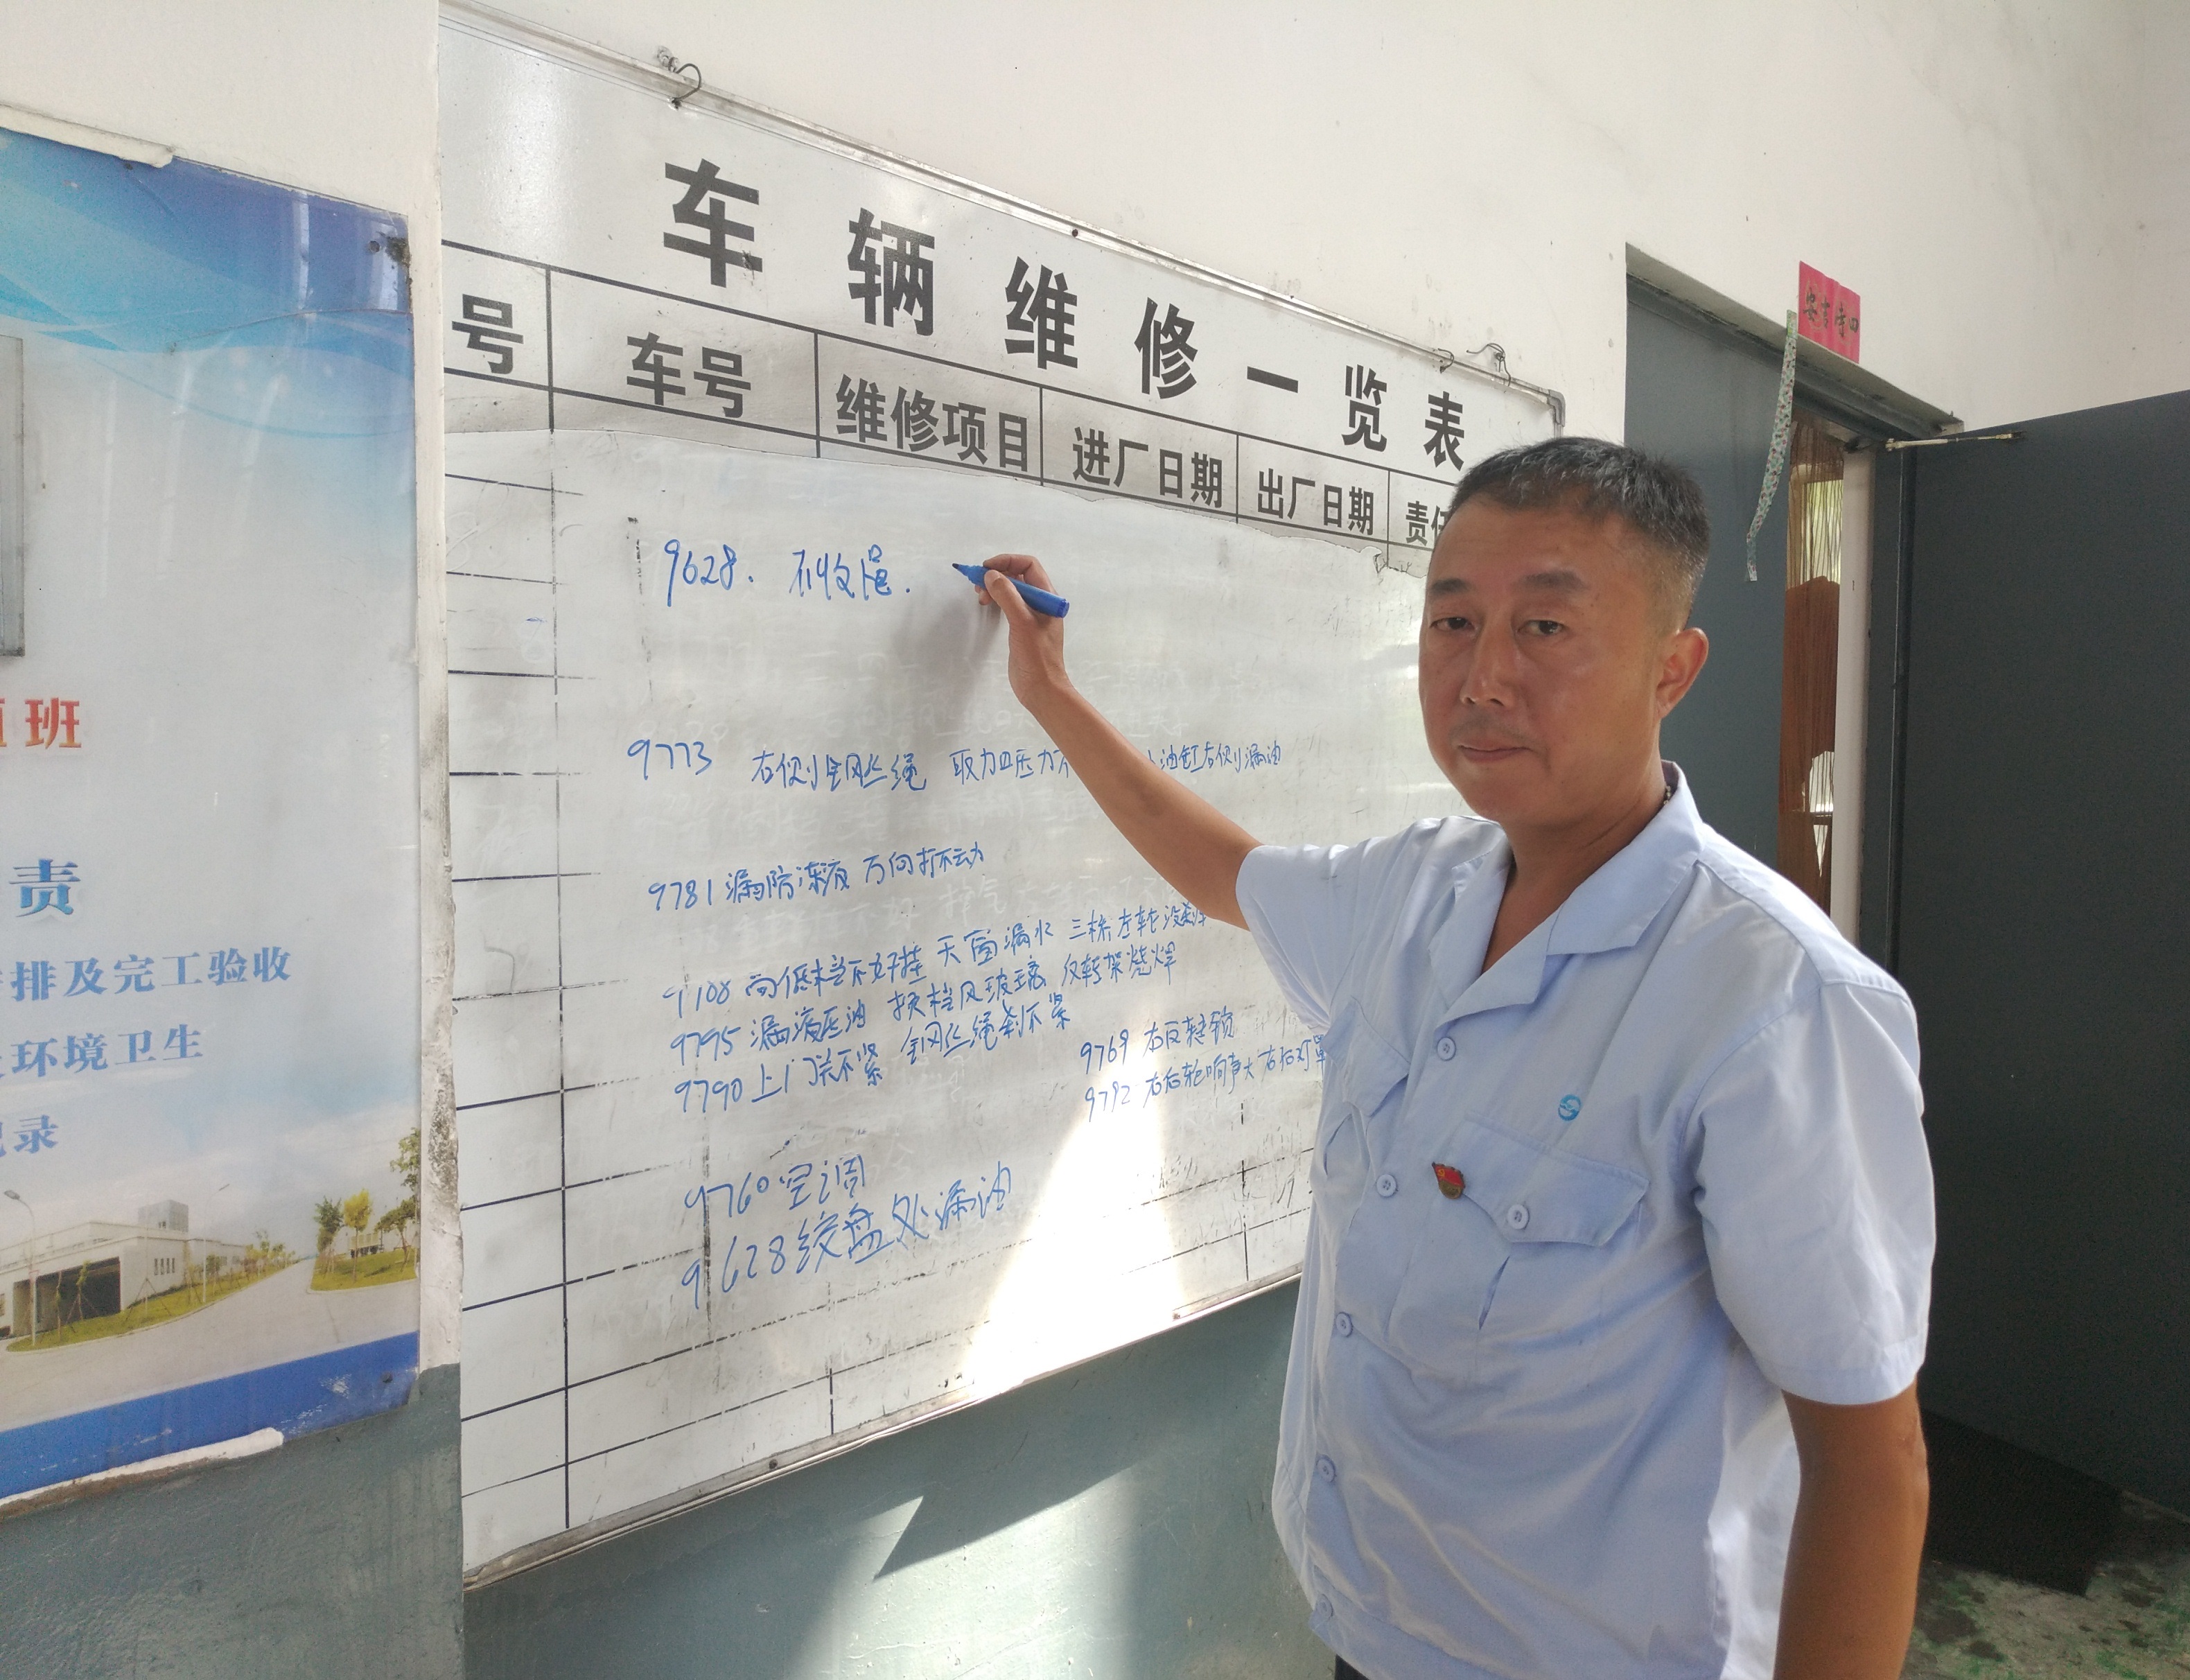 车辆维修一览表
号 车号 维修项目 进厂日期 出厂日期 责
9628. 不收绳.
9773 右侧钢丝绳 取力血压力不 油缸右侧漏油
9781 漏防冻液 方向打不动
9108 高低档不好挂 天窗漏水 三桥左轮没刹车
9795 漏液压油 换档风玻璃 反转架烧焊
9790 上门关不紧 钢丝绳刹不紧
9769 右反转锁
9792 右后轮响声大 右后灯罩
9760 空调
9628 绞盘处漏油
班
责
排及完工验收
环境卫生
录